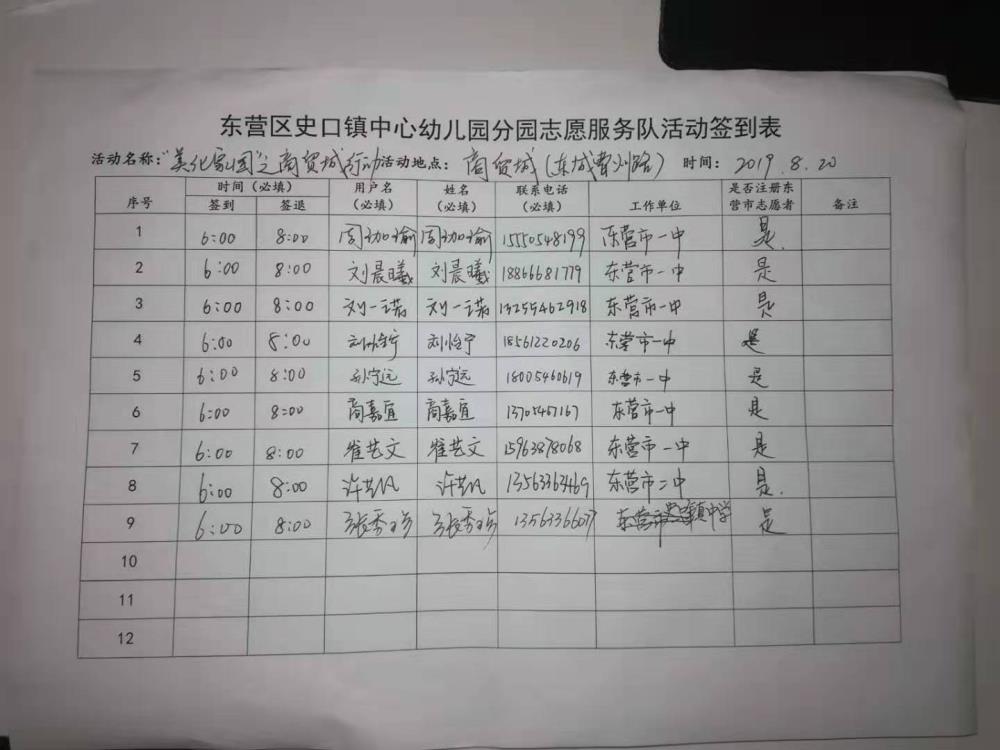 东营区史口镇中心幼儿园分园志愿服务队活动签到表
活动名称："美化家园"之商贸城行动 活动地点：商贸城（东城 路） 时间：2019.8.20
序号 时间（必填） 用户名（必填） 姓名（必填） 联系电话（必填） 工作单位 是否注册东营市志愿者 备注
签到 签退
1 6:00 8:00 周 瑜 周 瑜 15550548199 东营市一中 是
2 6:00 8:00 刘晨曦 刘晨曦 18866681779 东营市一中 是
3 6:00 8:00 刘一诺 刘一诺 13255462918 东营市一中 是
4 6:00 8:00 刘怡宁 刘怡宁 18561220206 东营市一中 是
5 6:00 8:00 孙宁远 孙宁远 18005460619 东营市一中 是
6 6:00 8:00 商嘉宜 商嘉宜 13705457167 东营市一中 是
7 6:00 8:00 崔艺文 崔艺文 15963878068 东营市一中 是
8 6:00 8:00 许艺凡 许艺凡 13563363469 东营市二中 是
9 6:00 8:00 张秀珍 张秀珍 13563366077 东营市 镇中学 是
10
11
12